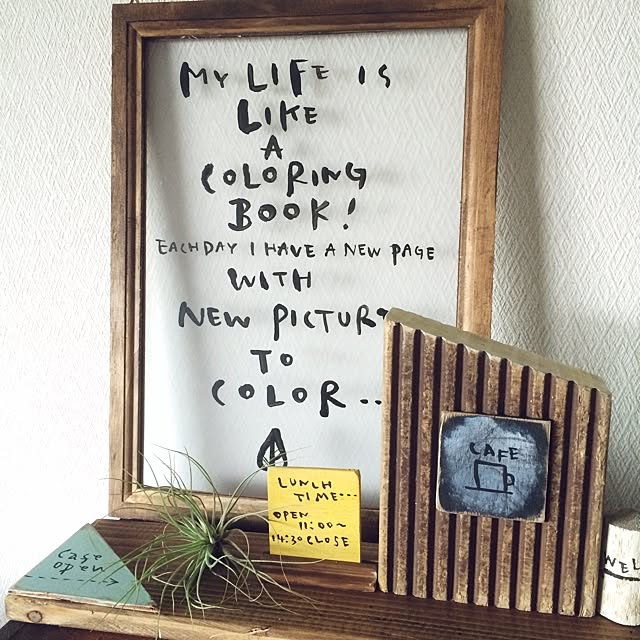 MY LIFE IS
LIKE
A
COLORING
BOOK!
EACH DAY I HAVE A NEW PAGE
WITH
NEW PICTURE
TO
COLOR..
CAFE
LUNCH
TIME...
OPEN
11:00~
14:30 CLOSE
Case
open
WEL